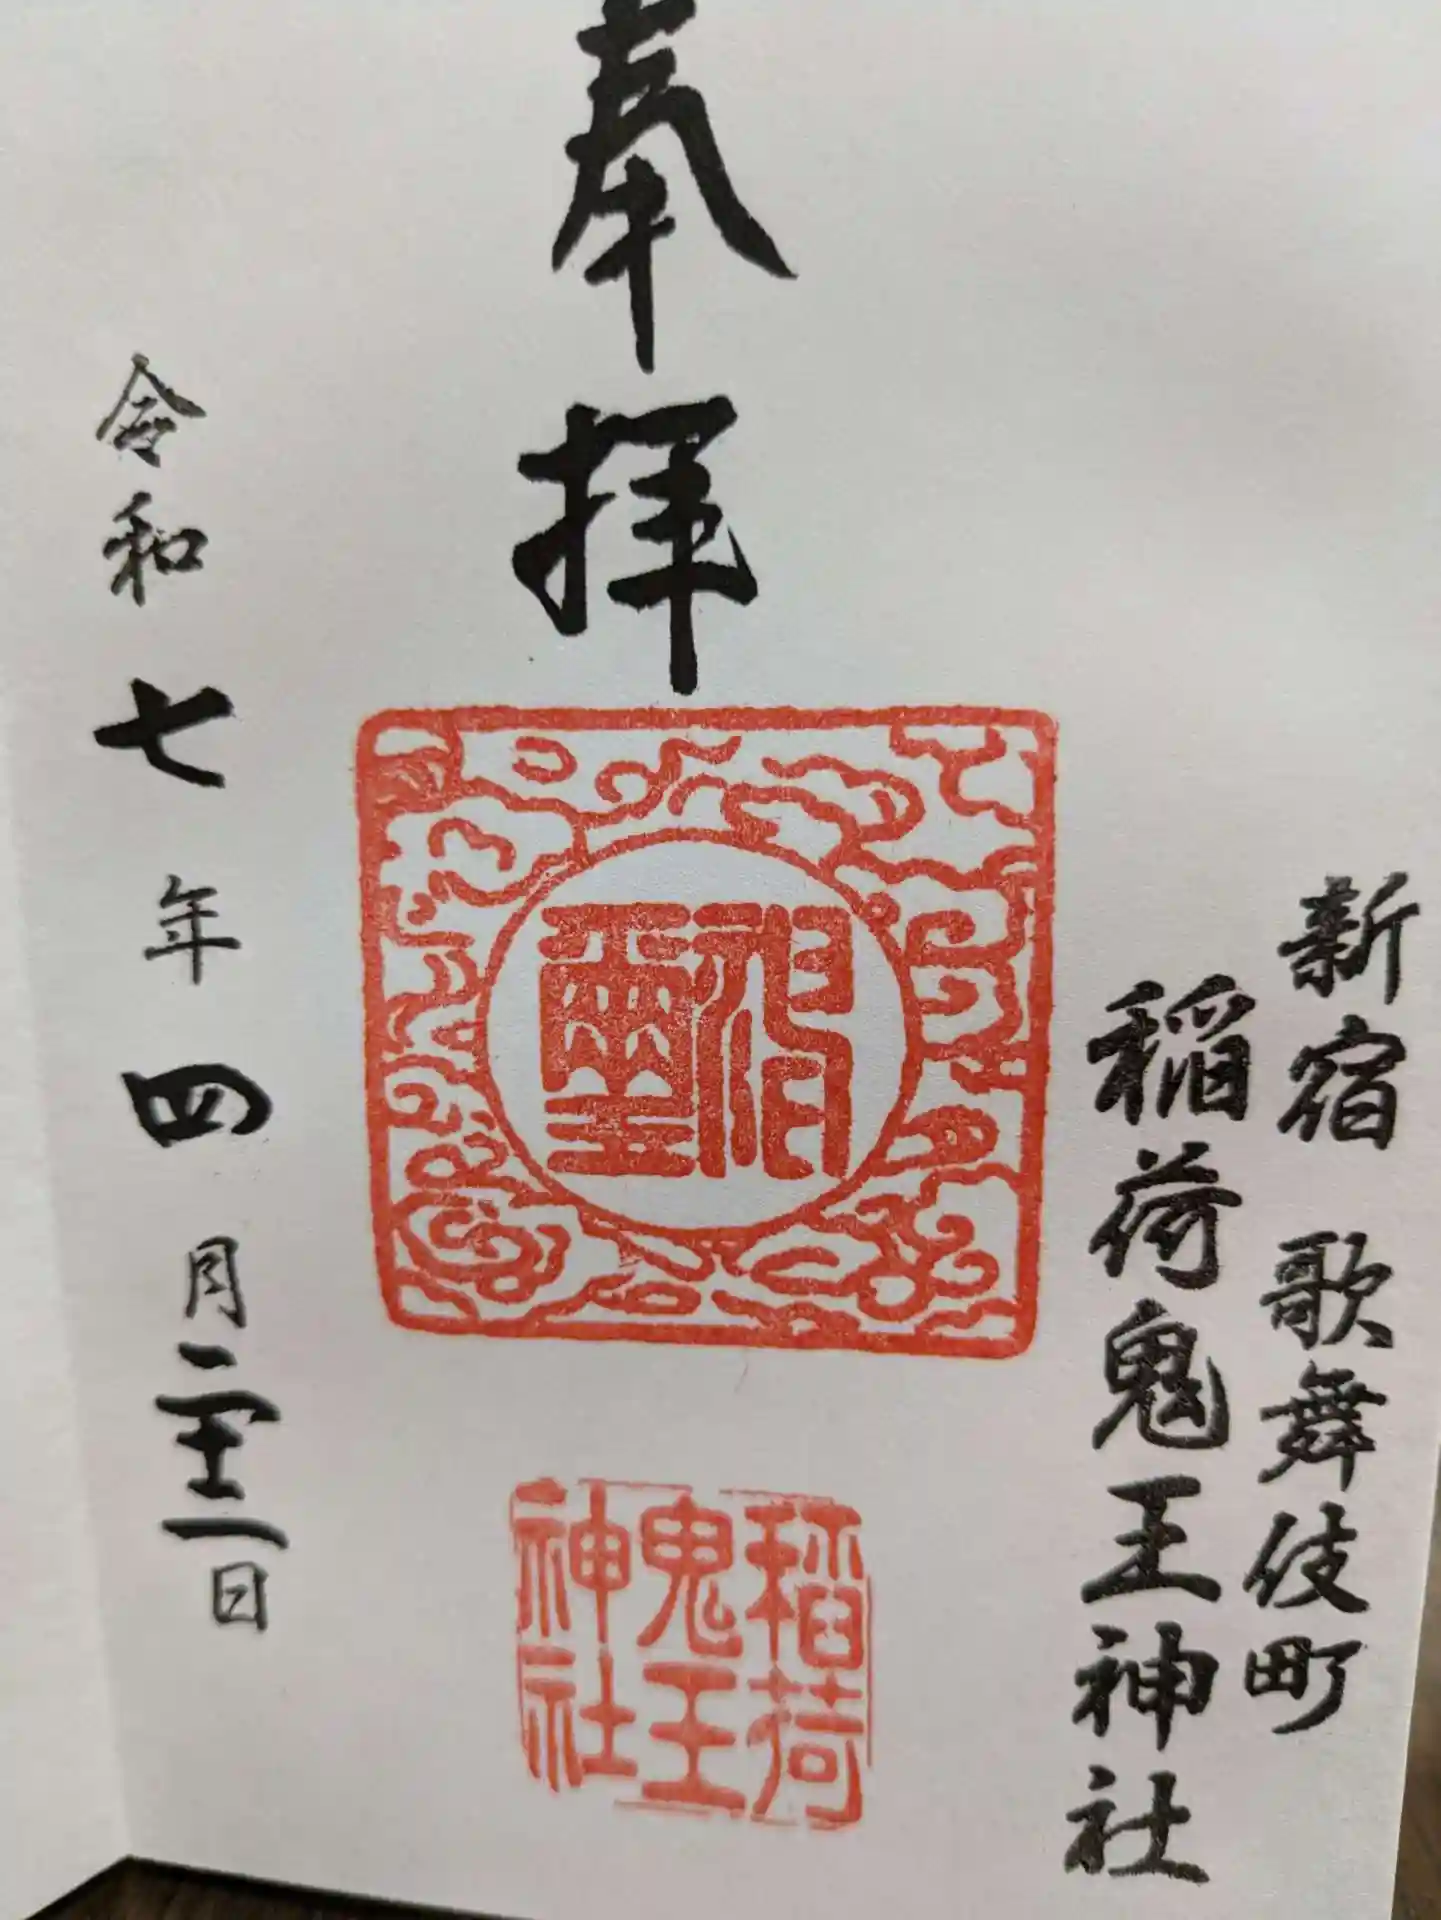 新宿 歌舞伎町
稲荷鬼王神社
奉拝
稲荷
鬼王
神社
令和七年四月二十二日